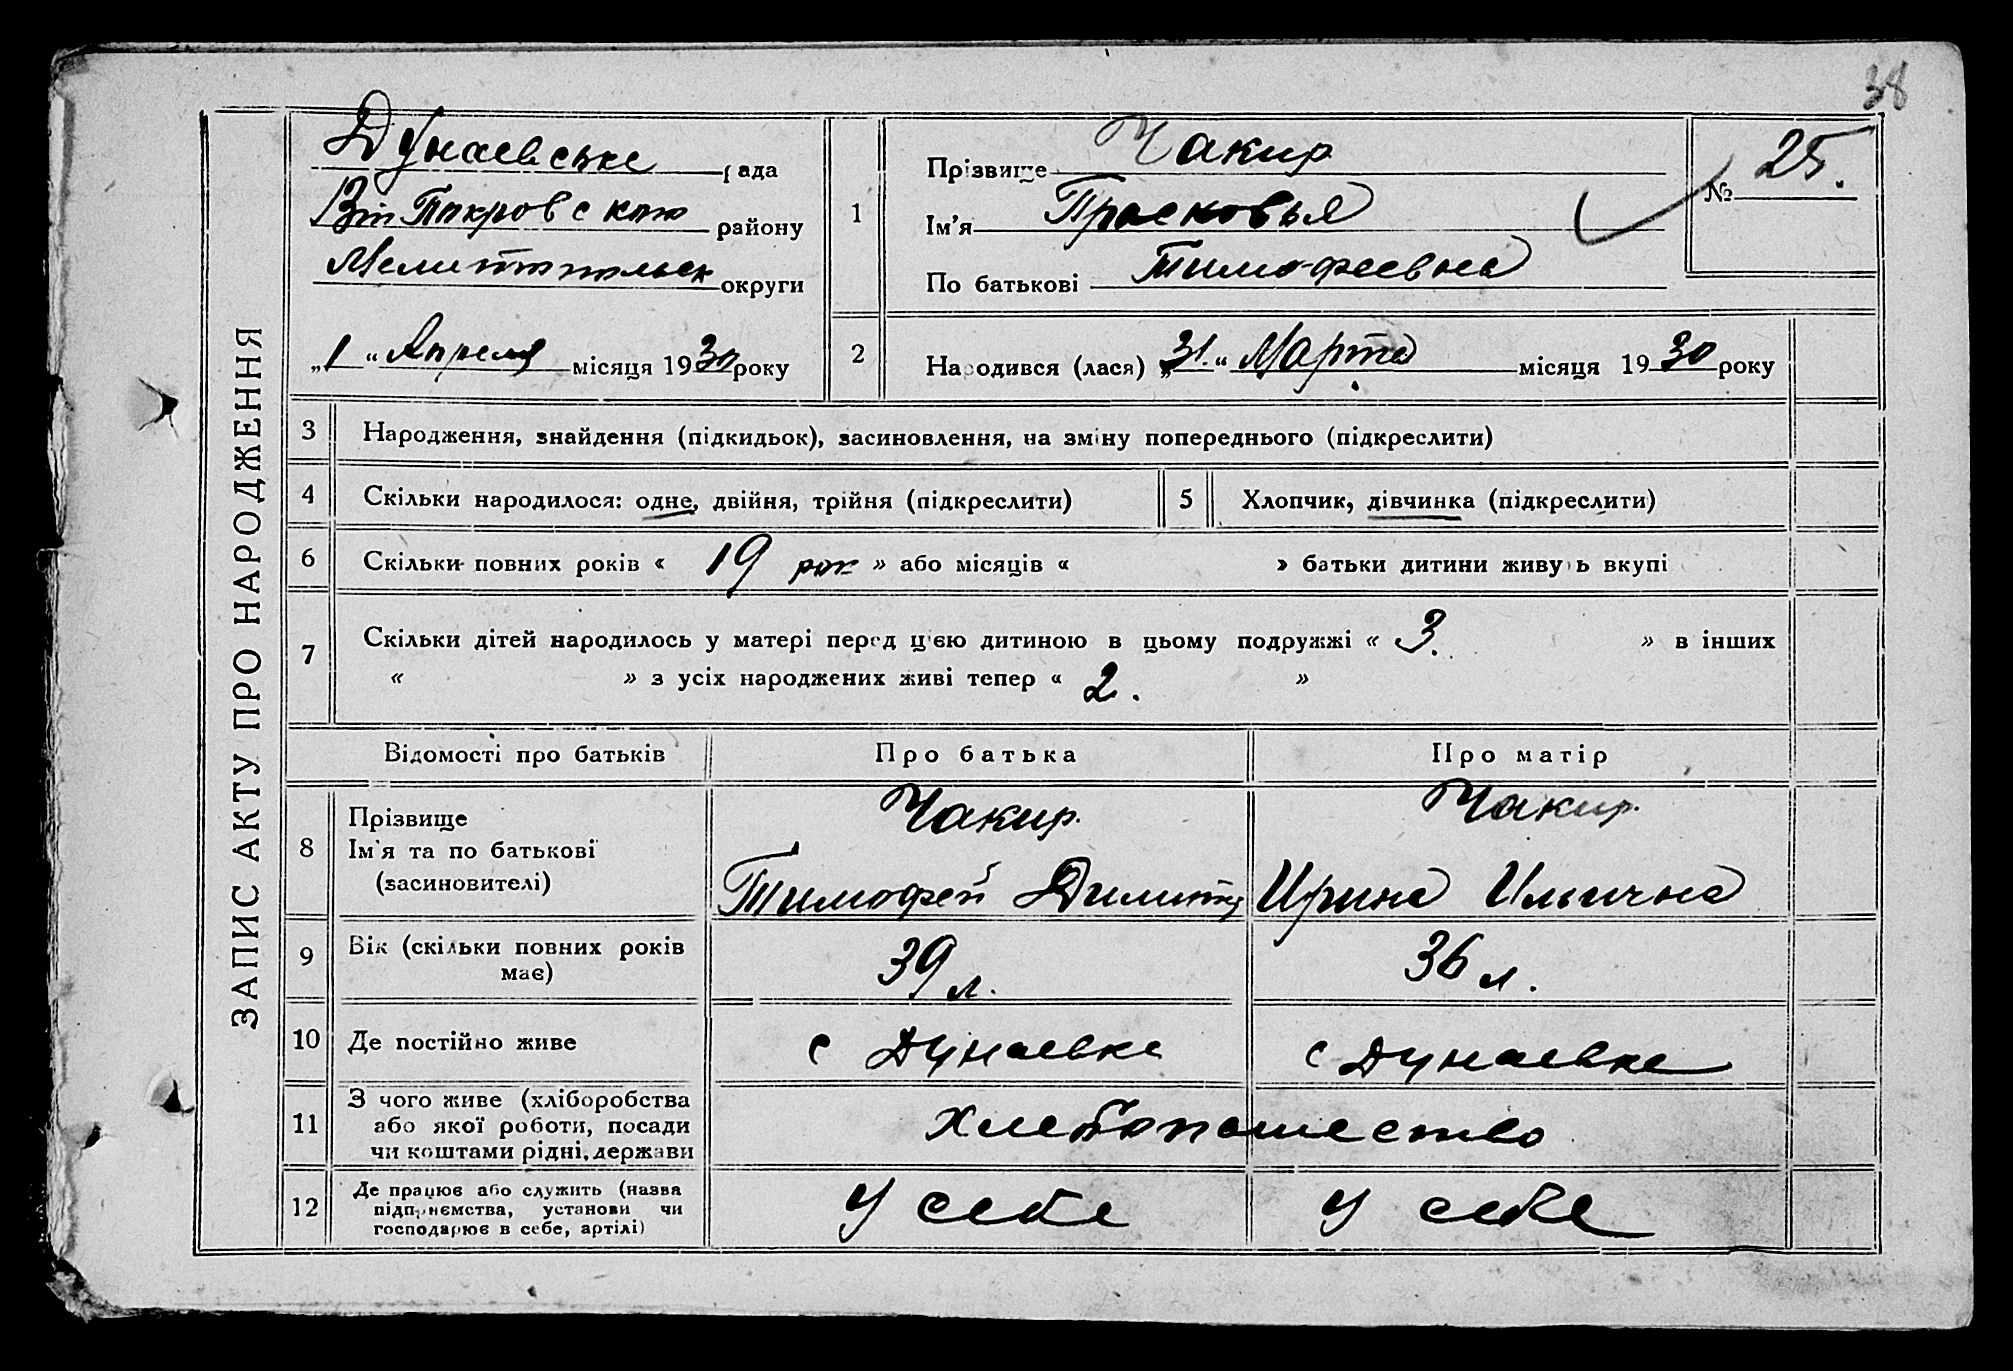 38
ЗАПИС АКТУ ПРО НАРОДЖЕННЯ
Дунаевське рада
районy
Мелитопольск округи
„1“ Апреля місяця 1930 року
1 Прізвище Чакир
Ім'я Прасковья
По батькові Тимофеевна
№ 25.
2 Народився (лася) „31.“ Марта місяця 1930 року
3 Народження, знайдення (підкидьок), засиновлення, на зміну попереднього (підкреслити)
4 Скільки народилося: одне, двійня, трійня (підкреслити)
5 Хлопчик, дівчинка (підкреслити)
6 Скільки повних років « 19 рок » або місяців « » батьки дитини живуть вкупі
7 Скільки дітей народилось у матері перед цією дитиною в цьому подружжі « 3. » в інших
« » з усіх народжених живі тепер « 2. »
Відомості про батьків Про батька Про матір
8 Прізвище
Ім'я та по батькові
(засиновителі)
Чакир.
Тимофей Димитр
Чакир.
Ирина Ильична
9 Вік (скільки повних років
має)
39 л.
36 л.
10 Де постійно живе
с Дунаевке
с Дунаевке
11 З чого живе (хліборобства
або якої роботи, посади
чи коштами рідні, держави
Хлебопашество
12 Де працює або служить (назва
підприємства, установи чи
господарює в себе, артілі)
У себе
У себе